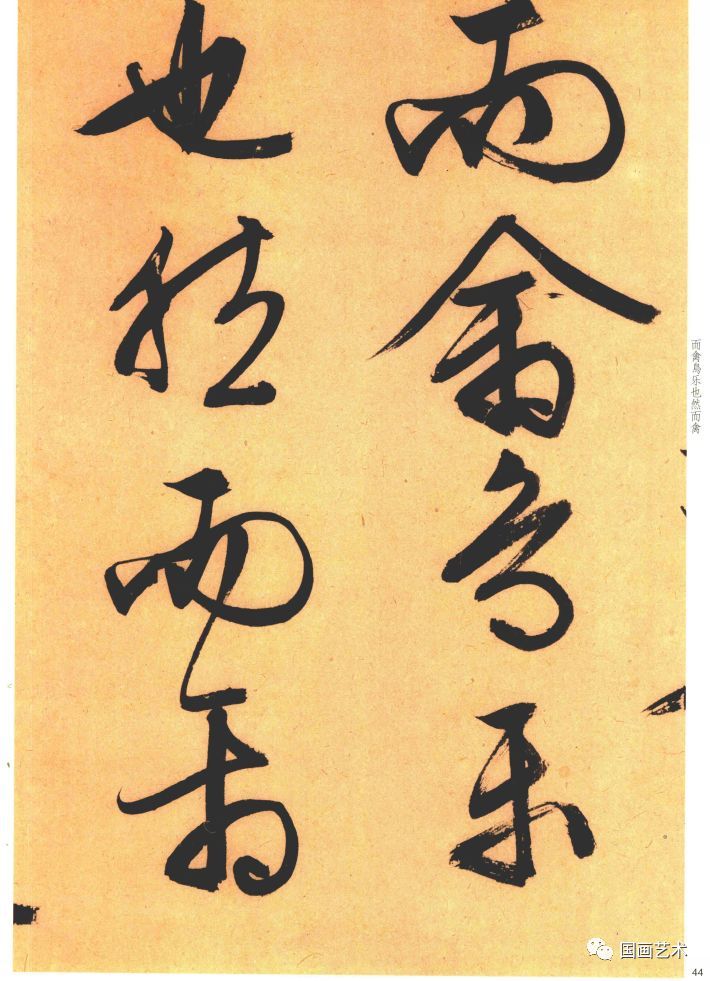 而禽鸟乐
也然而禽
而禽鸟乐也然而禽
国画艺术
44